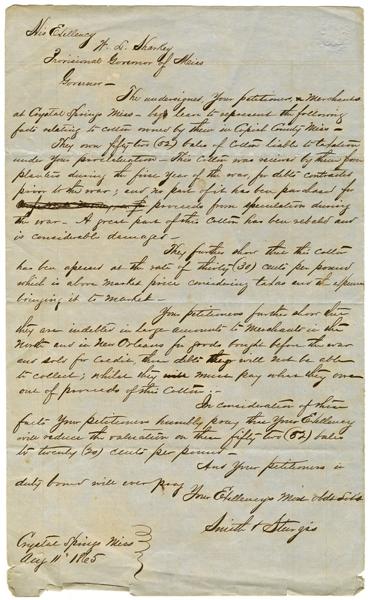 His Exellency
W. L. Sharkey
Provisional Governor of Miss
Governor -
The undersigned, Your petitioners, & Merchants
at Crystal Springs Miss - beg leave to represent the following
facts relating to cotton owned by them in Copiah County Miss -
They own fifty two (52) bales of Cotton liable to taxation
under Your proclamation - This Cotton was received by them from
planters during the first year of the war, for debts contracted
prior to the war; and no part of it has been purchased for
proceeds from speculation during
the war - A great part of this Cotton has been rebaled and
is considerable damaged -
They further show that this cotton
has been assessed at the rate of thirty (30) cents per pound
which is above market price considering taxes and the expense
bringing it to market -
Your petitioners further show that
they are indebted in large amounts to Merchants in the
North and in New Orleans for goods bought before the war
and sold for credit, these debts they will not be able
to collect; whilst they must pay what they owe
out of proceeds of this Cotton -
In consideration of these
facts Your petitioners humbly pray that Your Exellency
will reduce the valuation on these fifty two (52) bales
to twenty (20) cents per pound -
And Your petitioners in
duty bound will ever pray
Your Exellency's Most Obdt Svts
Smith & Sturgis
Crystal Springs Miss
Aug 11th 1865